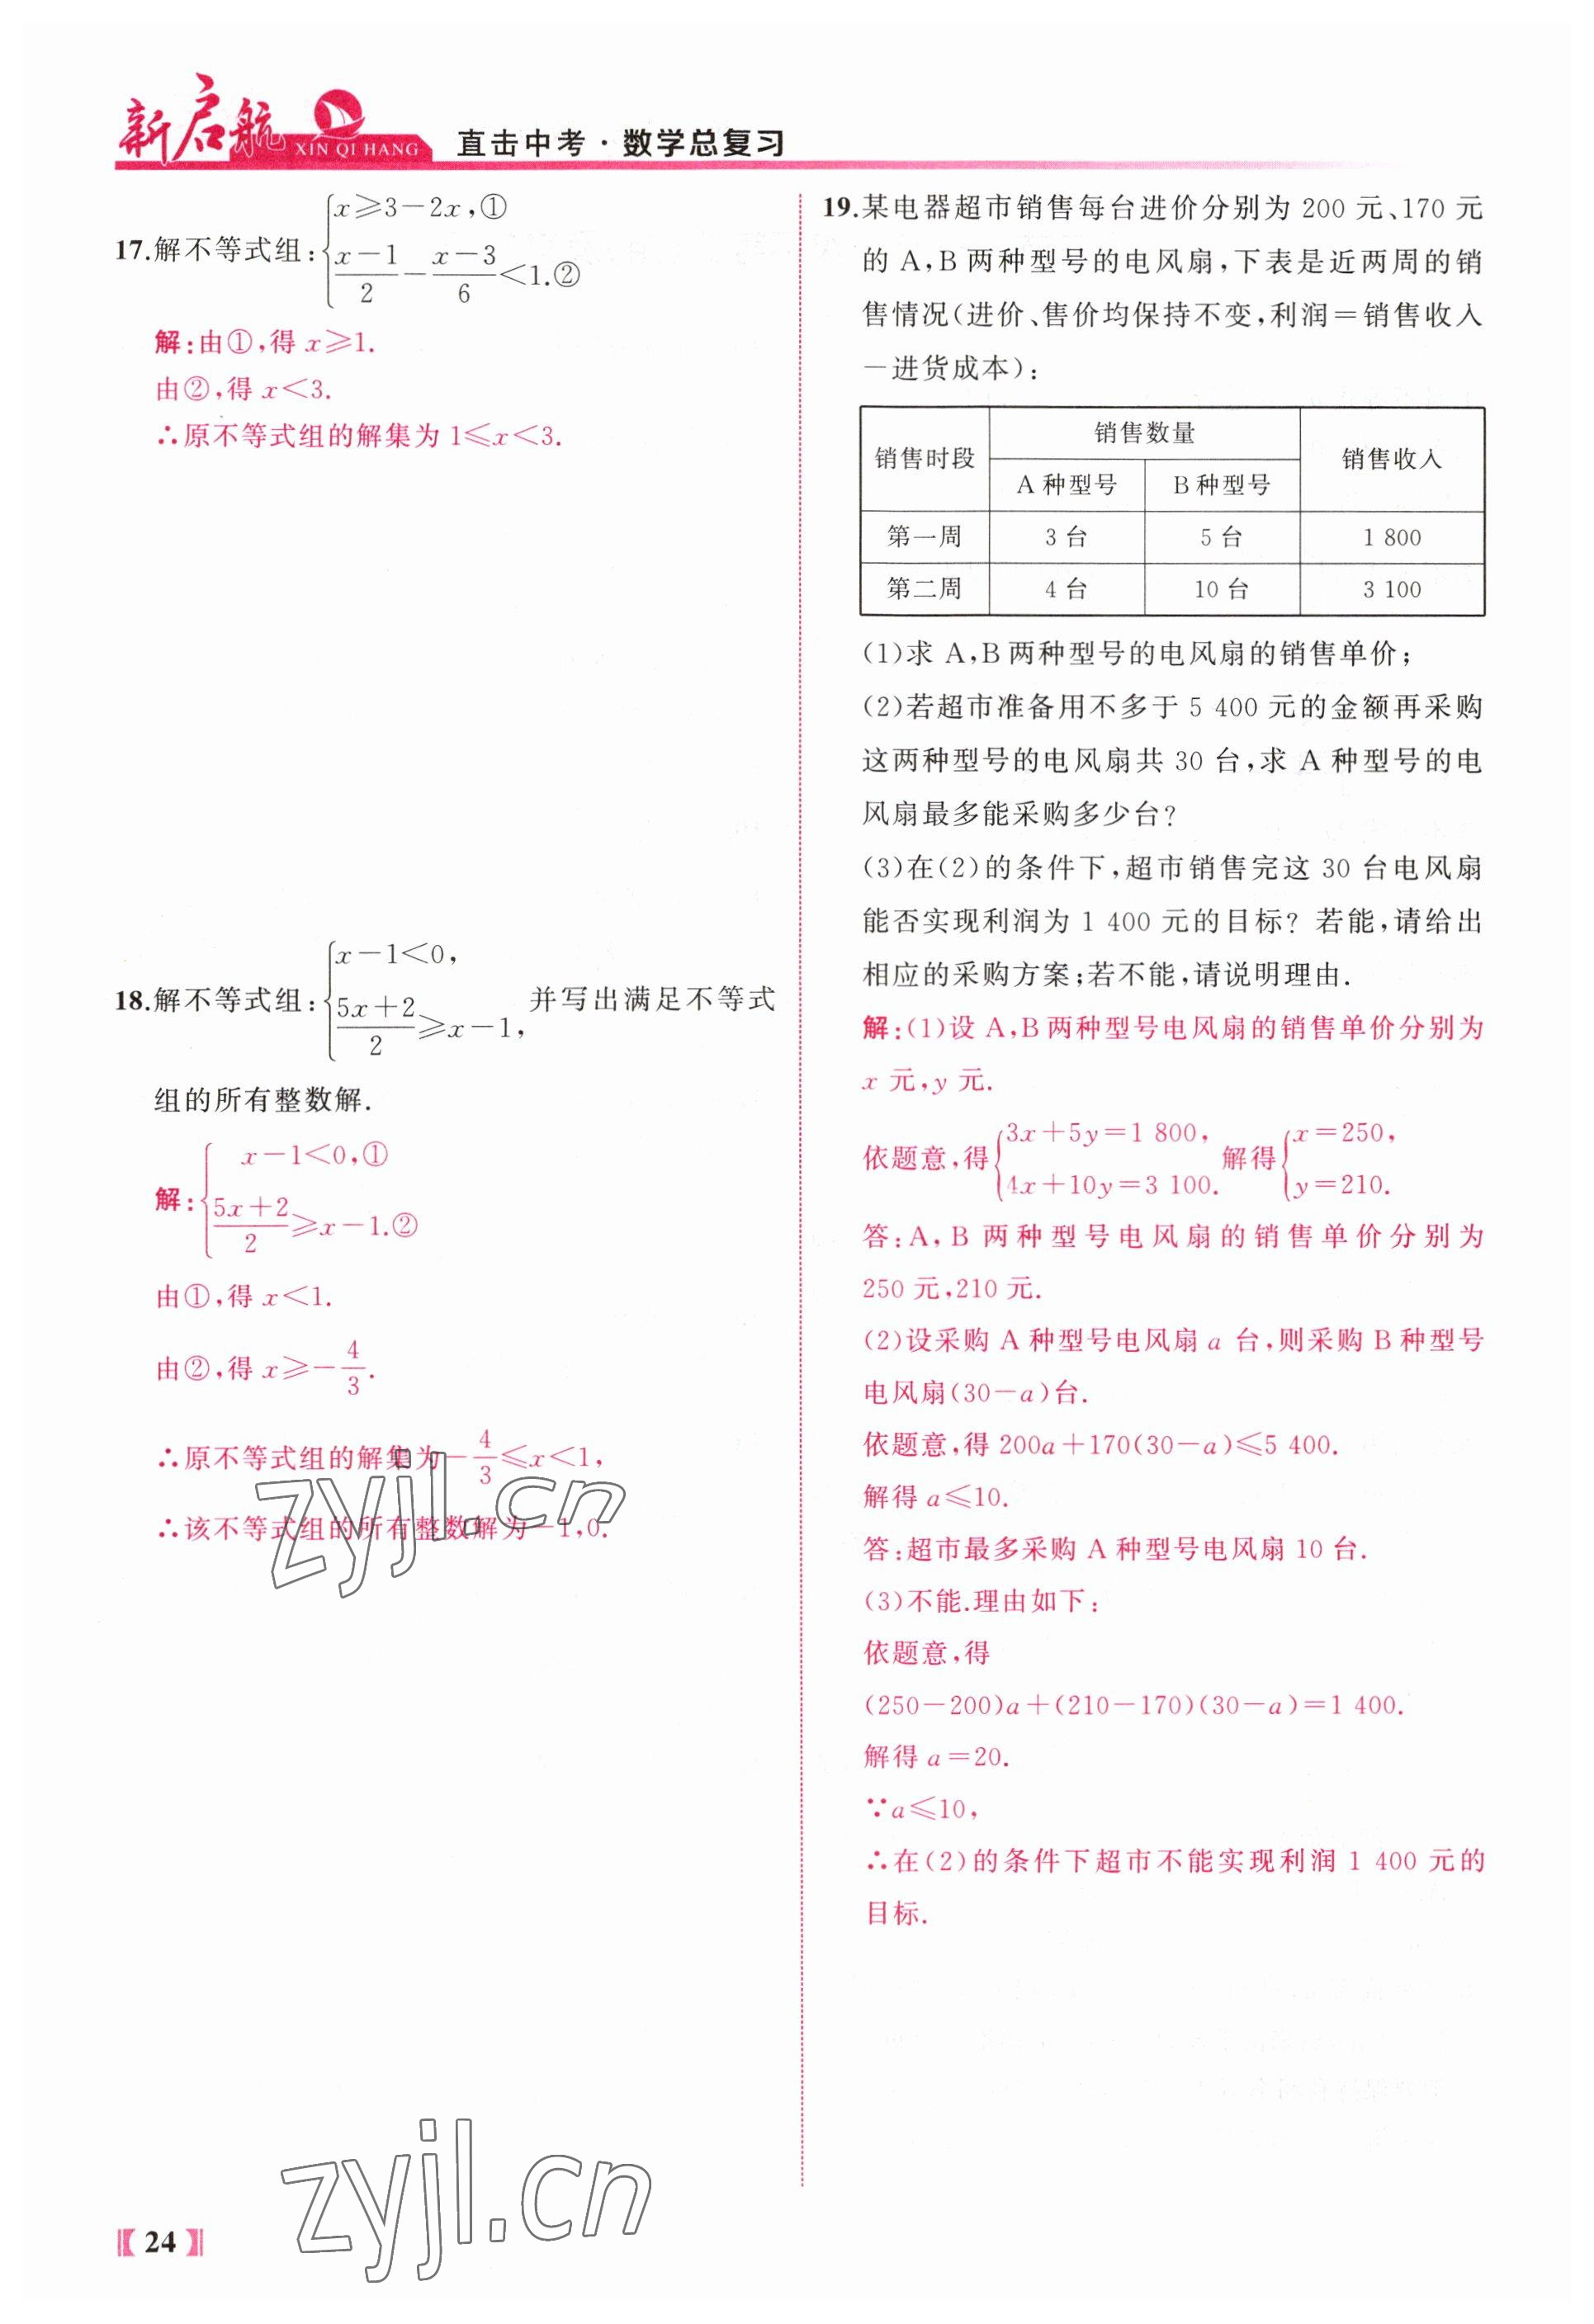 新启航
XIN QI HANG
直击中考·数学总复习
17.解不等式组:{x≥3-2x,①
(x-1)/2-(x-3)/6<1.②
解:由①,得 x≥1.
由②,得 x<3.
∴原不等式组的解集为 1≤x<3.
18.解不等式组:{x-1<0,
(5x+2)/2≥x-1,并写出满足不等式
组的所有整数解.
解:{x-1<0,①
(5x+2)/2≥x-1.②
由①,得 x<1.
由②,得 x≥-4/3.
∴原不等式组的解集为-4/3≤x<1,
∴该不等式组的所有整数解为-1,0.
zyjl.cn
19.某电器超市销售每台进价分别为 200 元、170 元
的 A,B 两种型号的电风扇,下表是近两周的销
售情况(进价、售价均保持不变,利润=销售收入
-进货成本):
销售时段 销售数量 销售收入
A 种型号 B 种型号
第一周 3 台 5 台 1 800
第二周 4 台 10 台 3 100
(1)求 A,B 两种型号的电风扇的销售单价;
(2)若超市准备用不多于 5 400 元的金额再采购
这两种型号的电风扇共 30 台,求 A 种型号的电
风扇最多能采购多少台?
(3)在(2)的条件下,超市销售完这 30 台电风扇
能否实现利润为 1 400 元的目标? 若能,请给出
相应的采购方案;若不能,请说明理由.
解:(1)设 A,B 两种型号电风扇的销售单价分别为
x 元,y 元.
依题意,得{3x+5y=1 800, 4x+10y=3 100. 解得{x=250, y=210.
答:A,B 两种型号电风扇的销售单价分别为
250 元,210 元.
(2)设采购 A 种型号电风扇 a 台,则采购 B 种型号
电风扇(30-a)台.
依题意,得 200a+170(30-a)≤5 400.
解得 a≤10.
答:超市最多采购 A 种型号电风扇 10 台.
(3)不能.理由如下:
依题意,得
(250-200)a+(210-170)(30-a)=1 400.
解得 a=20.
∵a≤10,
∴在(2)的条件下超市不能实现利润 1 400 元的
目标.
zyjl.cn
24